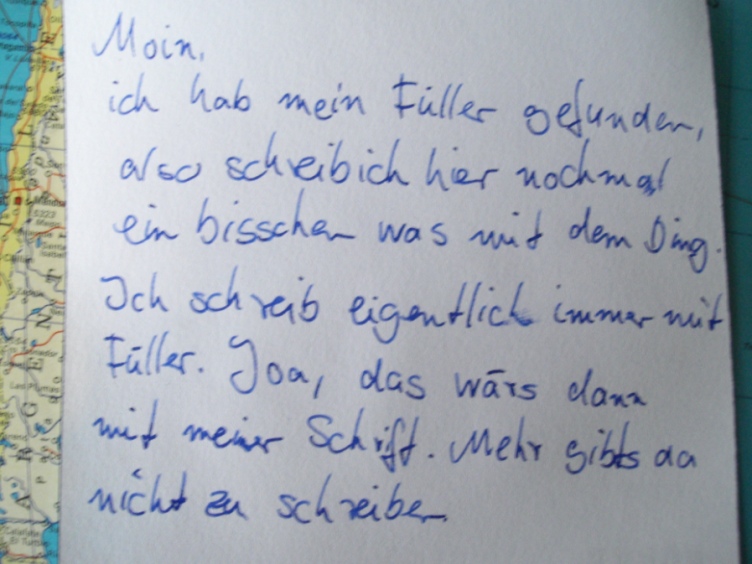 Moin,
ich hab mein Füller gefunden,
also schreib ich hier nochmal
ein bisschen was mit dem Ding.
Ich schreib eigentlich immer mit
Füller. Joa, das wärs dann
mit meiner Schrift. Mehr gibts da
nicht zu schreiben.